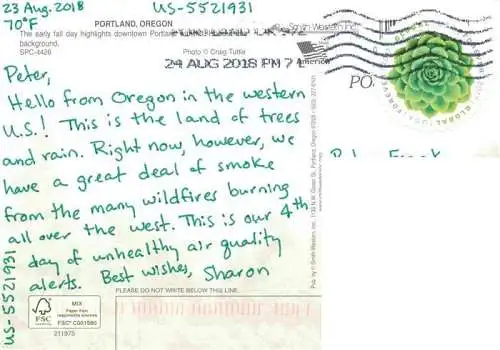 23 Aug. 2018
70°F
US-5521931
PORTLAND, OREGON
The early fall day highlights downtown
background.
SPC-4426
Photo © Craig Tuttle
© Smith-Western Inc.
24 AUG 2018 PM 7 L
America
GLOBAL
FOREVER
Peter,
Hello from Oregon in the western
U.S.! This is the land of trees
and rain. Right now, however, we
have a great deal of smoke
from the many wildfires burning
all over the west. This is our 4th
day of unhealthy air quality
alerts. Best wishes, Sharon
US-5521931
PLEASE DO NOT WRITE BELOW THIS LINE.
FSC
MIX
Paper from
responsible sources
211975